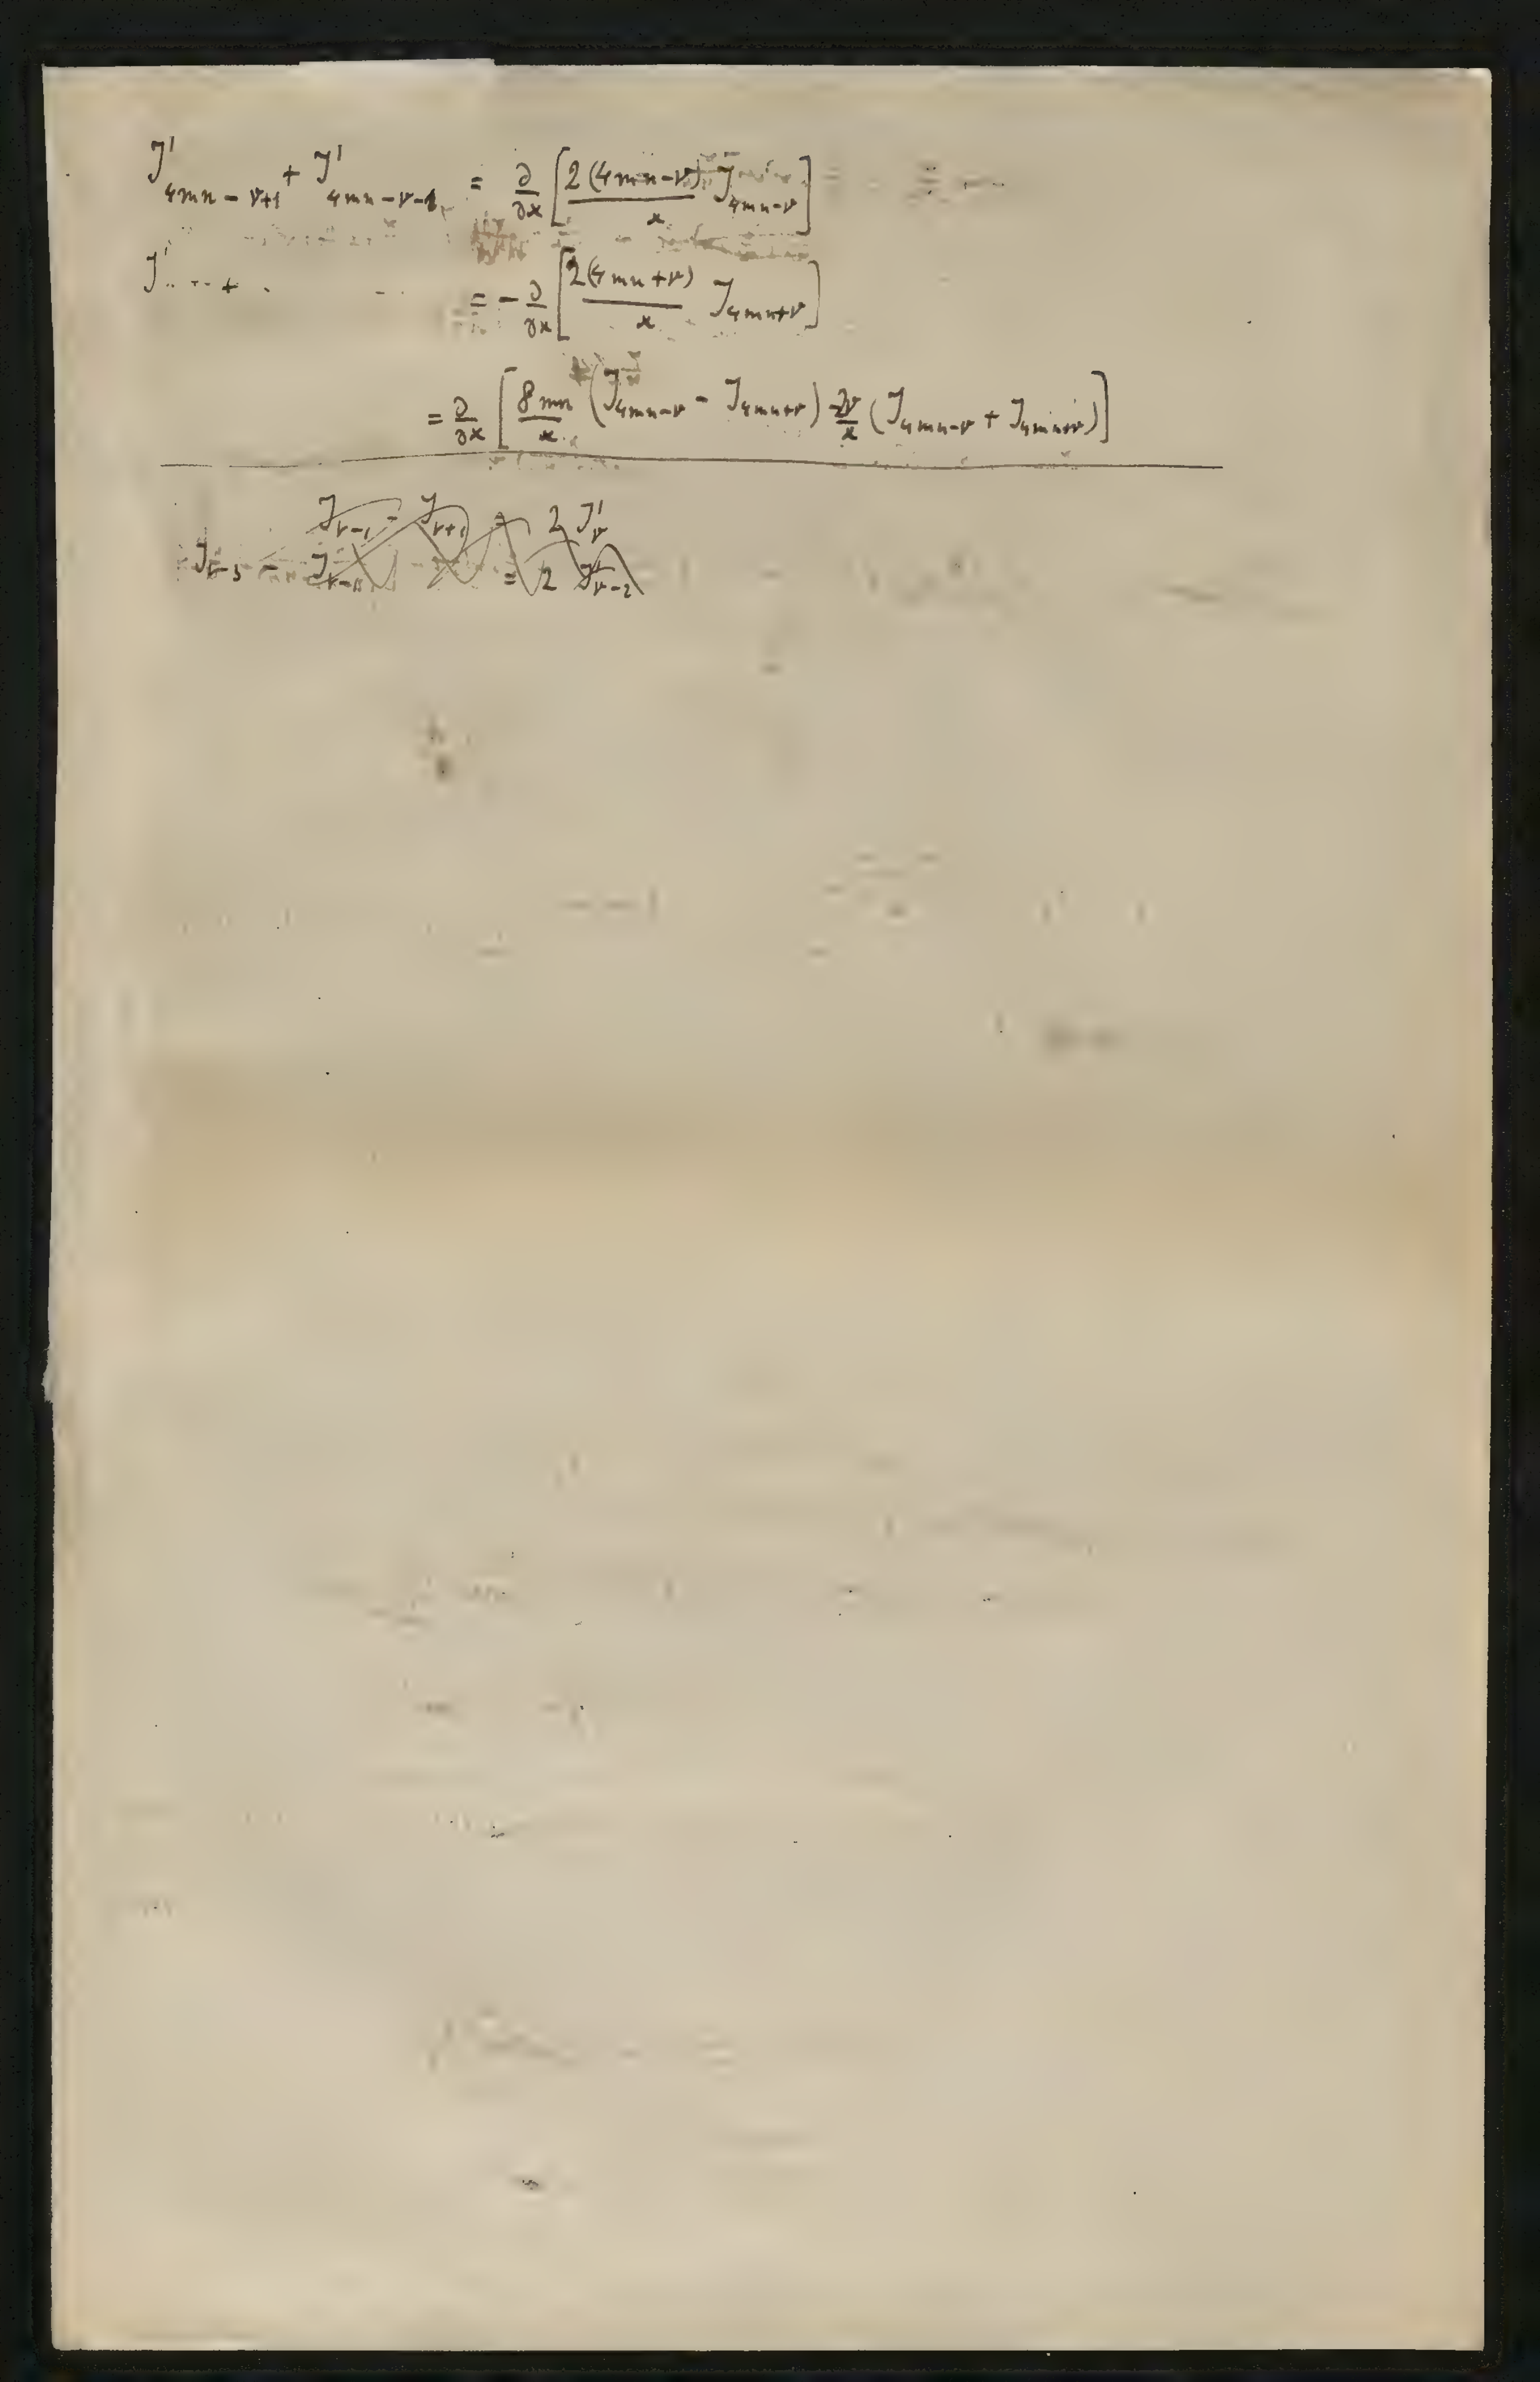 J'₄ₘₙ₋ᵥ₊₁ + J'₄ₘₙ₋ᵥ₋₁ = ∂/∂x [ 2(4mn-ν)/x J₄ₘₙ₋ᵥ ]
J' .. - + . - .. = - ∂/∂x [ 2(4mn+ν)/x J₄ₘₙ₊ᵥ ]
= ∂/∂x [ 8mn/x (J₄ₘₙ₋ᵥ - J₄ₘₙ₊ᵥ) - 2ν/x (J₄ₘₙ₋ᵥ + J₄ₘₙ₊ᵥ) ]
Jᵥ₋₁ - Jᵥ₊₁ = 2 J'ᵥ
Jᵥ₋₃ - Jᵥ₋₁ = 2 J'ᵥ₋₂